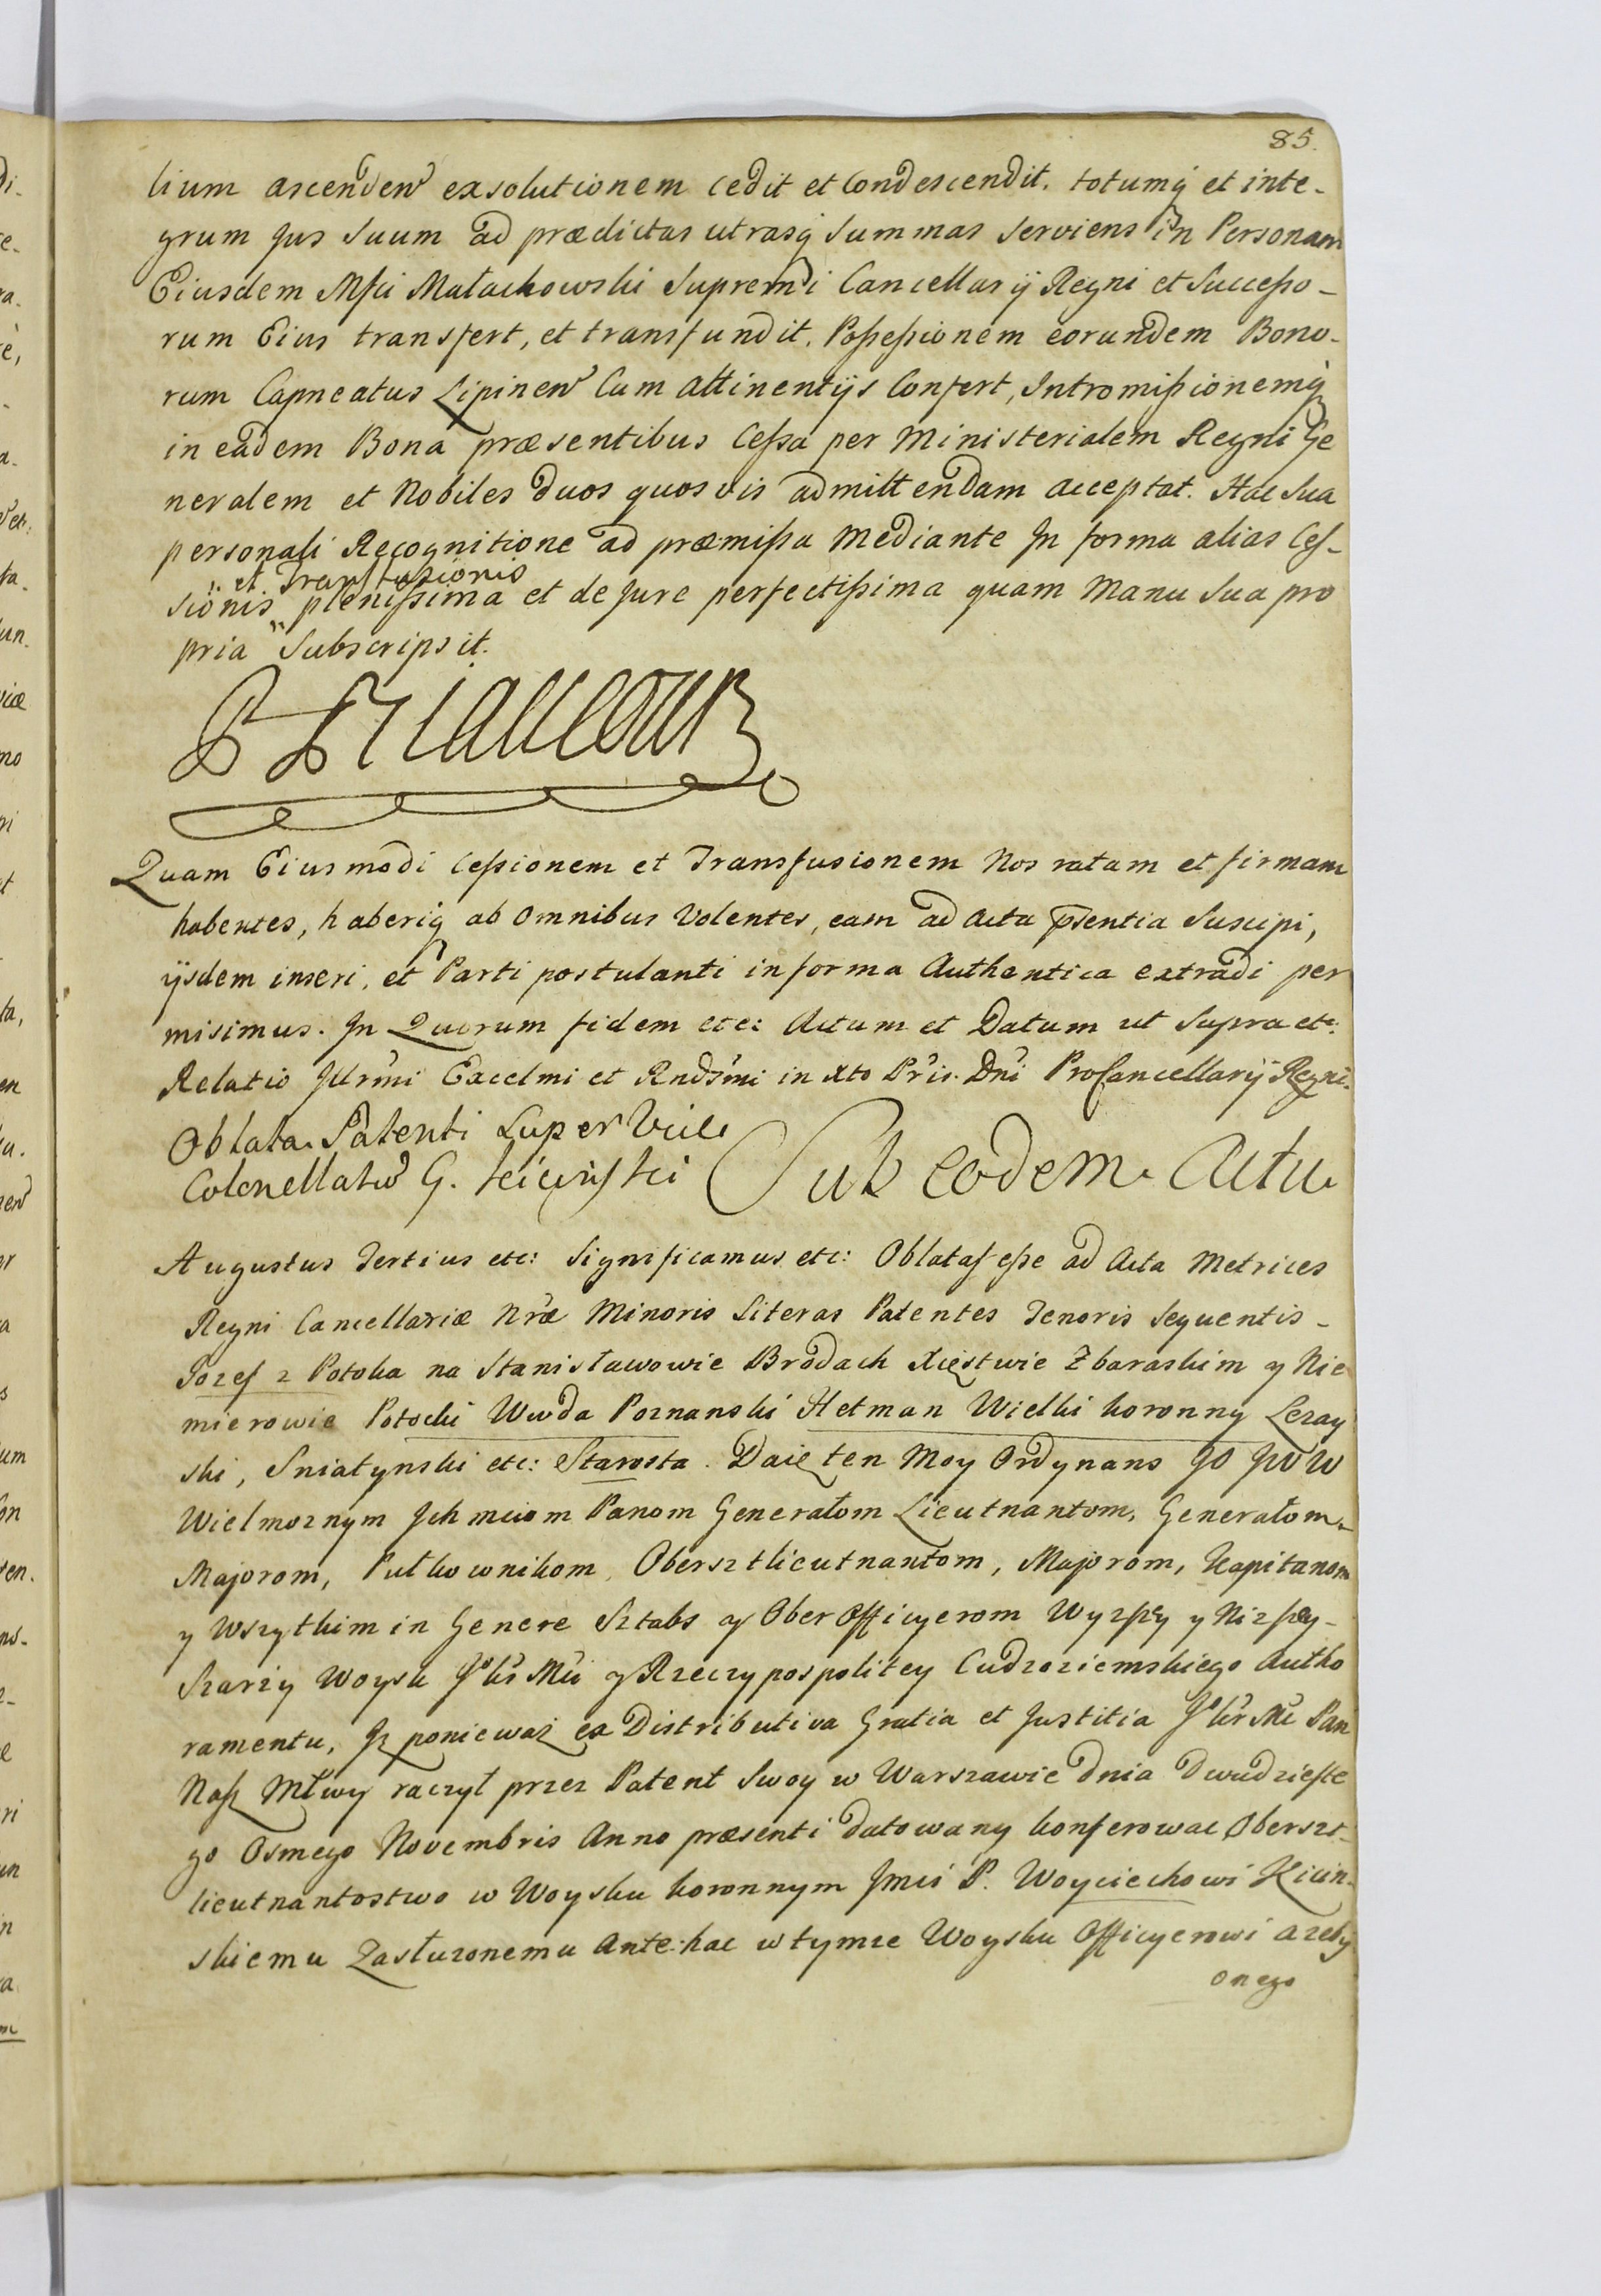 85.
lium ascenden exsolutionem cedit et Condescendit. totumq et inte-
grum Jus Suum ad prædictas utrasq Summas serviens in Personam
Eiusdem Mfci Małachowski Supremi Cancellarij Regni et Succeßo-
rum Eius transfert, et transfundit. Poßeßionem eorundem Bono-
rum Capneatus Lipinen Cum attinentijs Confert, Intromißionemq
in eadem Bona præsentibus Ceßa per Ministerialem Regni Ge
neralem et Nobiles duos quosvis admittendam acceptat. Hac Sua
personali Recognitione ad præmißa Mediante In forma alias Ceſ-
et Transfusionis
sionis plenißima et de Jure perfectißima quam Manu Sua pro
pria Subscripsit.
Quam Eiusmodi Ceßionem et Transfusionem Nos ratam et firmam
habentes, haberiq ab Omnibus Volentes, eam ad Acta psentia Suscipi,
ijsdem inseri, et Parti postulanti in forma Authentica extradi per
misimus. In Quorum fidem etc: Actum et Datum ut Supra etc:
Relatio Illrmi Excelmi et Rndsmi in Xto Pris. Dni ProCancellarij Regni.
Oblata Patenti Super Vice
Colonellatu G. Kicinski Sub eodem Actu
Augustus Tertius etc: Significamus etc: Oblatas eße ad Acta Metrices
Regni Cancellariæ Nræ Minoris Literas Patentes Tenoris Sequentis-
Jozef z Potoka na Stanisławowie Brodach Xięstwie Zbaraskim y Nie
mierowie Potocki Wwda Poznanski Hetman Wielki koronny Lezay
ski, Sniatynski etc: Starosta. Daię ten Moy Ordynans JO JW W
Wielmoznym Ichmciom Panom Generałom Lieutnantom, Generałom
Majorom, Pułkownikom, Obersztlieutnantom, Majorom, Kapitanom
y Wszytkim in Genere Sztabs y Ober Officyerom Wyzßey y Nizßey
Szarzy Woysk JKr Mci y Rzeczypospolitey Cudzoziemskiego Autho
ramentu, Iz poniewaz ex Distributiva Gratia et Justitia JKr Mc Pan
Naß Młwy raczył przez Patent Swoy w Warszawie dnia Dwudzieste
go Osmego Novembris Anno præsenti datowany konferowac Oberszt-
lieutnantostwo w Woysku koronnym Jmci P. Woyciechowi Kicin-
skiemu Zasłuzonemu Ante:hac w tymze Woysku Officyerowi azeby
onego